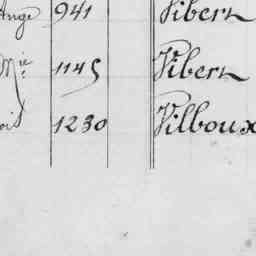 Ange 941 Vibert
Mie 1145 Vibert
ois 1230 Vilboux